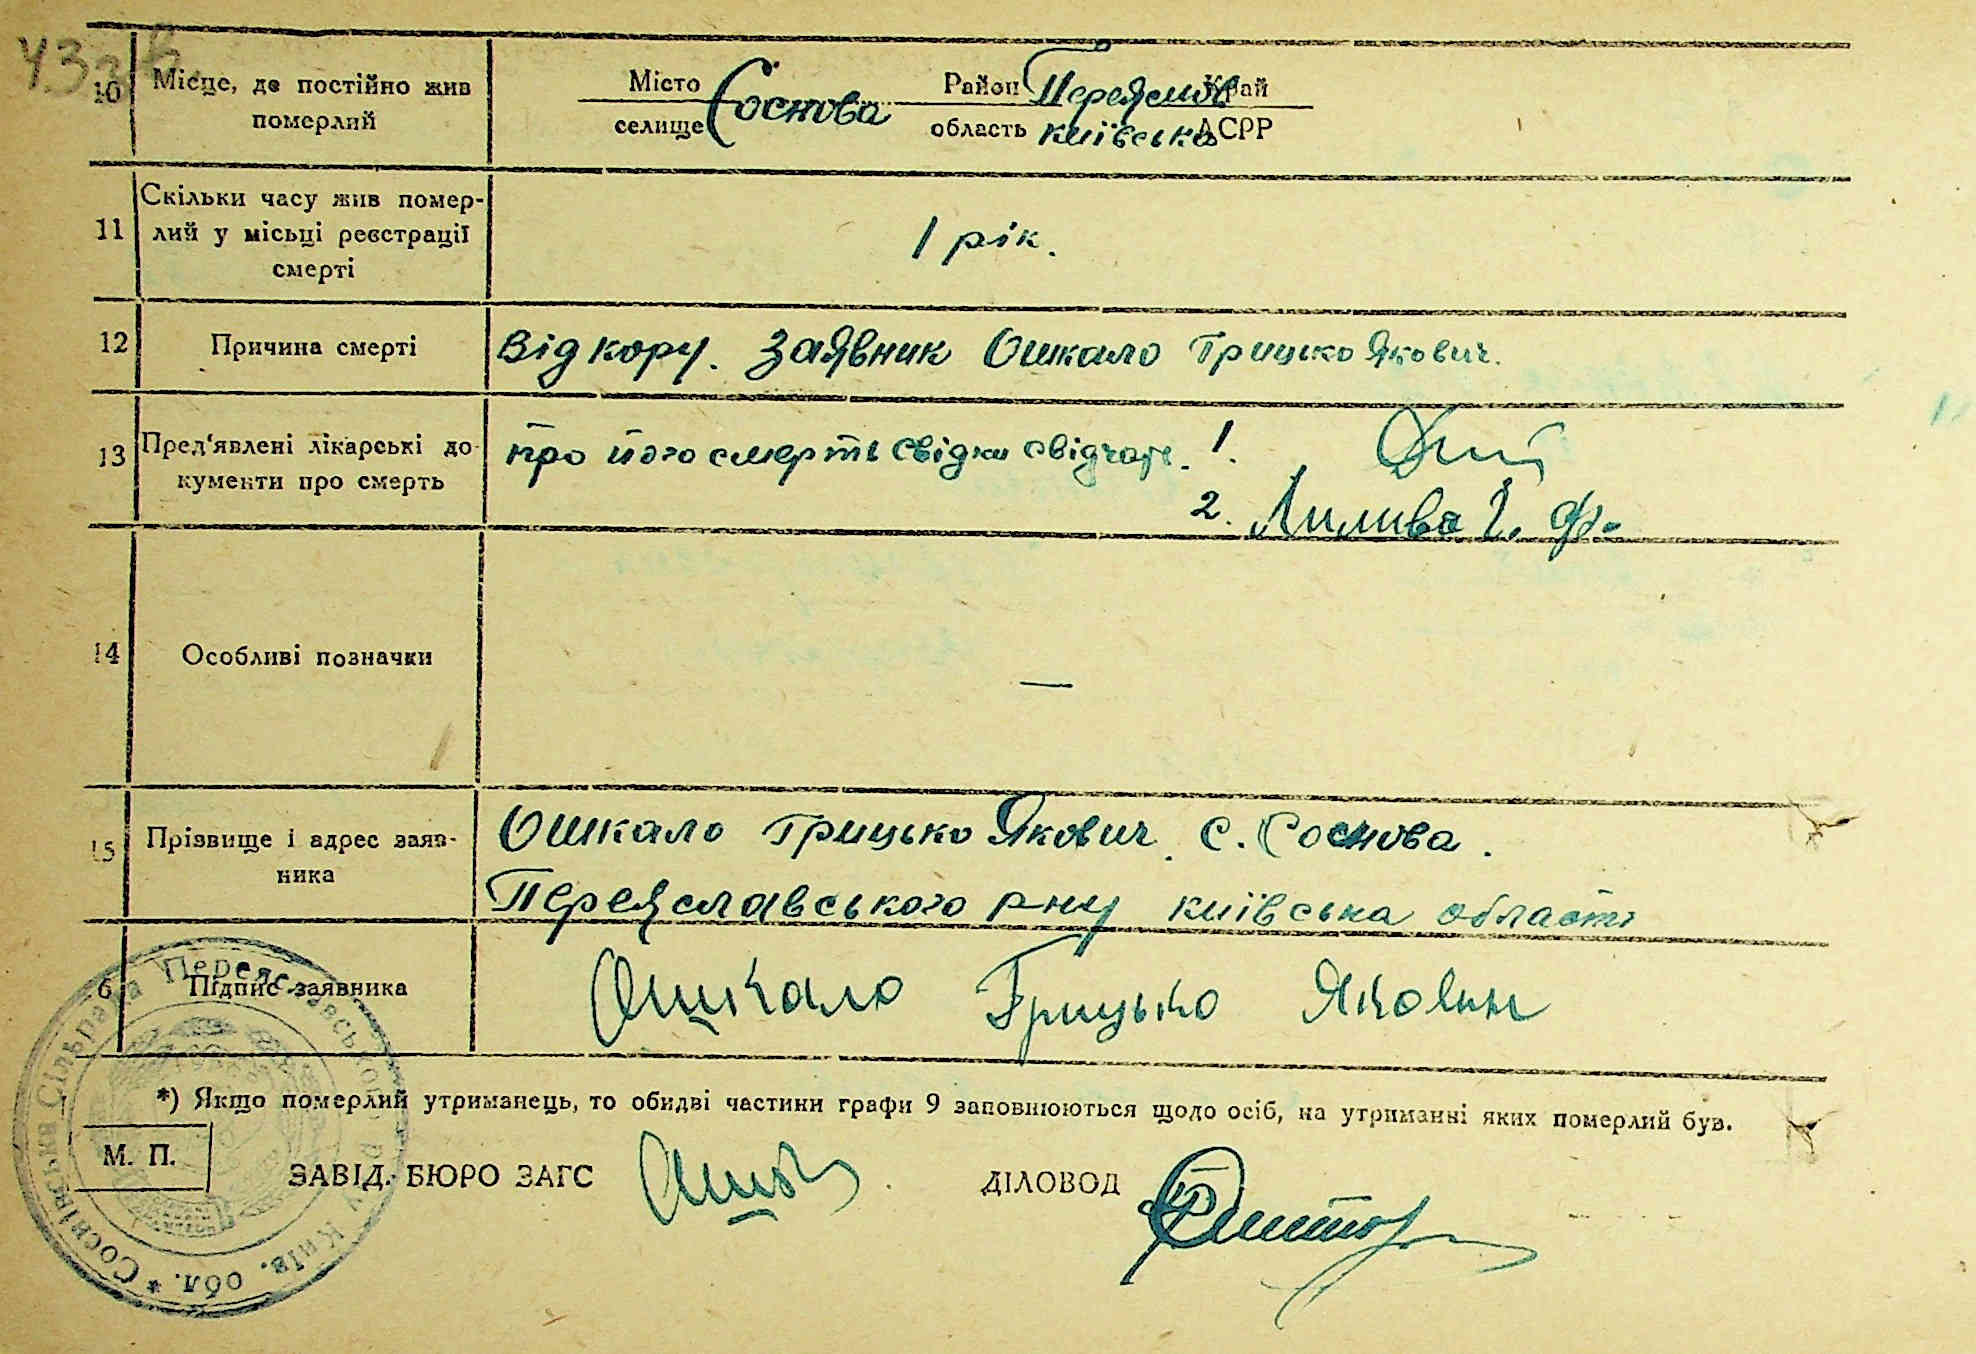 43зв
10 Місце, де постійно жив померлий
Місто Соснова Район Переяслов Край
селище область київська АСРР
11 Скільки часу жив помер-
лий у місьці реєстрації
смерті
1 рік.
12 Причина смерті
від кору. Заявник Ошкало Грицько Якович.
13 Пред'явлені лікарські до-
кументи про смерть
про його смерть свідки свідчать. 1.
2. Лилива Г. Ф.
14 Особливі позначки
—
15 Прізвище і адрес заяв-
ника
Ошкало Грицько Якович. с. Соснова.
Переяславського рну київська області
6 Підпис заявника
Ошкало Грицько Якович
*) Якщо померлий утриманець, то обидві частини графи 9 заповнюються щодо осіб, на утриманні яких померлий був.
М. П.
ЗАВІД. БЮРО ЗАГС
ДІЛОВОД
Соснівська Сільрада Переяславського р-ну Київ. обл. *